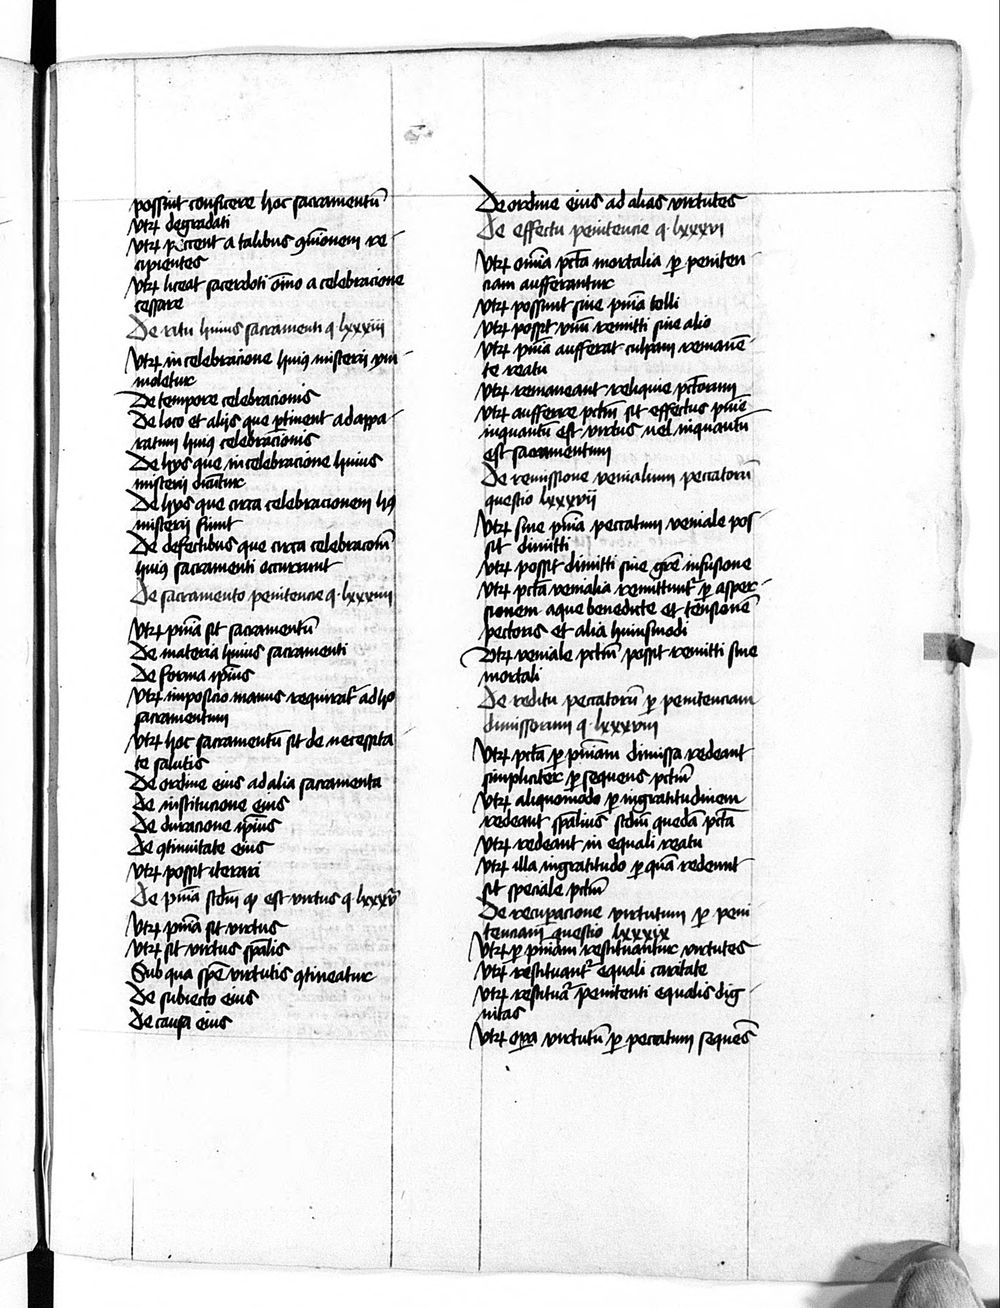 possunt conficere hoc sacramentū
Vtrꝝ degradati
Vtrꝝ peccent a talibus ꝯmōnem re-
cipientes
Vtrꝝ liceat sacerdoti om̄o a celebracione
cessare
De ritu huius sacramenti q. lxxxiii
Vtrꝝ in celebracione huiꝰ misterii xp̄c
moletur
De tempore celebracionis
De loco et alijs que ꝑtinent ad appa-
ratum huiꝰ celebracionis
De hijs que in celebracione huius
misterii dicūtur
De hijs que circa celebracionem hꝰ
misterii fiunt
De defectibus que circa celebracōm̄
huiꝰ sacramenti occurrunt
De sacramento penitencie q. lxxxiiii
Vtrꝝ pn̄ia sit sacramentū
De materia huius sacramenti
De forma ipius
Vtrꝝ imposicio manus requirat᷑ ad hͦ
sacramentum
Vtrꝝ hoc sacramentū sit de necessita
te salutis
De ordine eius ad alia sacramenta
De institucione eius
De duracione ip̄ius
De ꝯtinuitate eius
Vtrꝝ possit iterari
De pn̄ia scd̄m ꝙ est virtus q. lxxxv
Vtrꝝ pn̄ia sit virtus
Vtrꝝ sit virtus sp̄alis
Sub qua spē virtutis ꝯtineatur
De subiecto eius
De causa eius
De ordine eius ad alias virtutes
De effectu penitencie q. lxxxvi
Vtrꝝ om̄ia pctā mortalia ꝑ peniten
ciam aufferantur
Vtrꝝ possunt sine pn̄ia tolli
Vtrꝝ possit vnū remitti sine alio
Vtrꝝ pn̄ia aufferat culpam remanē-
te reatu
Vtrꝝ remaneant reliquie pctōrum
Vtrꝝ aufferre pctm̄ sit effectus pn̄ie
inquantū est virtus uel inquantū
est sacramentum
De remissione venialium peccatorū
questio lxxxvii
Vtrꝝ sine pn̄ia peccatum veniale pos-
sit dimitti
Vtrꝝ possit dimitti sine grē infusione
Vtrꝝ pctā venialia remittunt᷑ ꝑ asper-
sionem aque benedicte et tensionē
pectoris et alia huiusmodi
Vtrꝝ veniale pctm̄ possit remitti sine
mortali
De reditu peccatorū ꝑ penitenciam
dimissorum q. lxxxviii
Vtrꝝ pctā ꝑ pn̄iam dimissa redeant
simpliciter ꝑ sequens pctm̄
Vtrꝝ aliquomodo ꝑ ingratitudinem
redeant sp̄alius scd̄m quedā pctā
Vtrꝝ redeant in equali reatu
Vtrꝝ illa ingratitudo ꝑ quā redeunt
sit speciale pctm̄
De recuꝑacione virtutum ꝑ peni
tenciam questio lxxxix
Vtrꝝ ꝑ pn̄iam restituantur virtutes
Vtrꝝ restituant᷑ equali caritate
Vtrꝝ restituat᷑ penitenti equalis dig-
nitas
Vtrꝝ oꝑa virtutū ꝑ peccatum sequēs